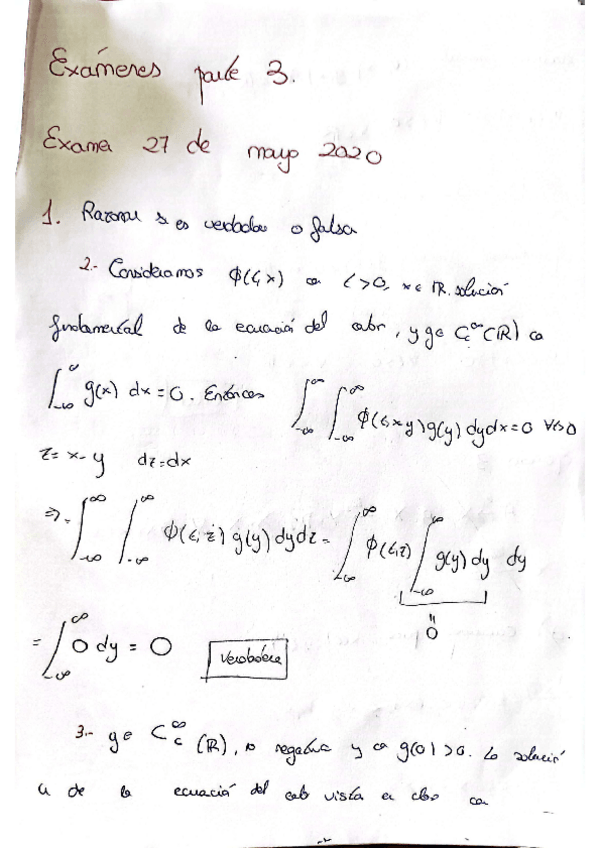 Exámenes parte 3.
Examen 27 de mayo 2020
1. Razonar si es verdadera o falsa
2.- Consideramos φ(t,x) con t>0, x∈ℝ. solución
fundamental de la ecuación del calor, y g∈ C_c^∞(ℝ) con
∫_{-∞}^{∞} g(x) dx = 0. Entonces ∫_{-∞}^{∞} ∫_{-∞}^{∞} φ(t,x-y) g(y) dy dx = 0 ∀t>0
z = x-y dz = dx
⇒ ∫_{-∞}^{∞} ∫_{-∞}^{∞} φ(t,z) g(y) dy dz = ∫_{-∞}^{∞} φ(t,z) ∫_{-∞}^{∞} g(y) dy dy
"
0
= ∫_{-∞}^{∞} 0 dy = 0 Verdadera
3.- g∈ C_c^∞(ℝ), no negativa y con g(0)>0. La solución
u de la ecuación del calor vista en clase con